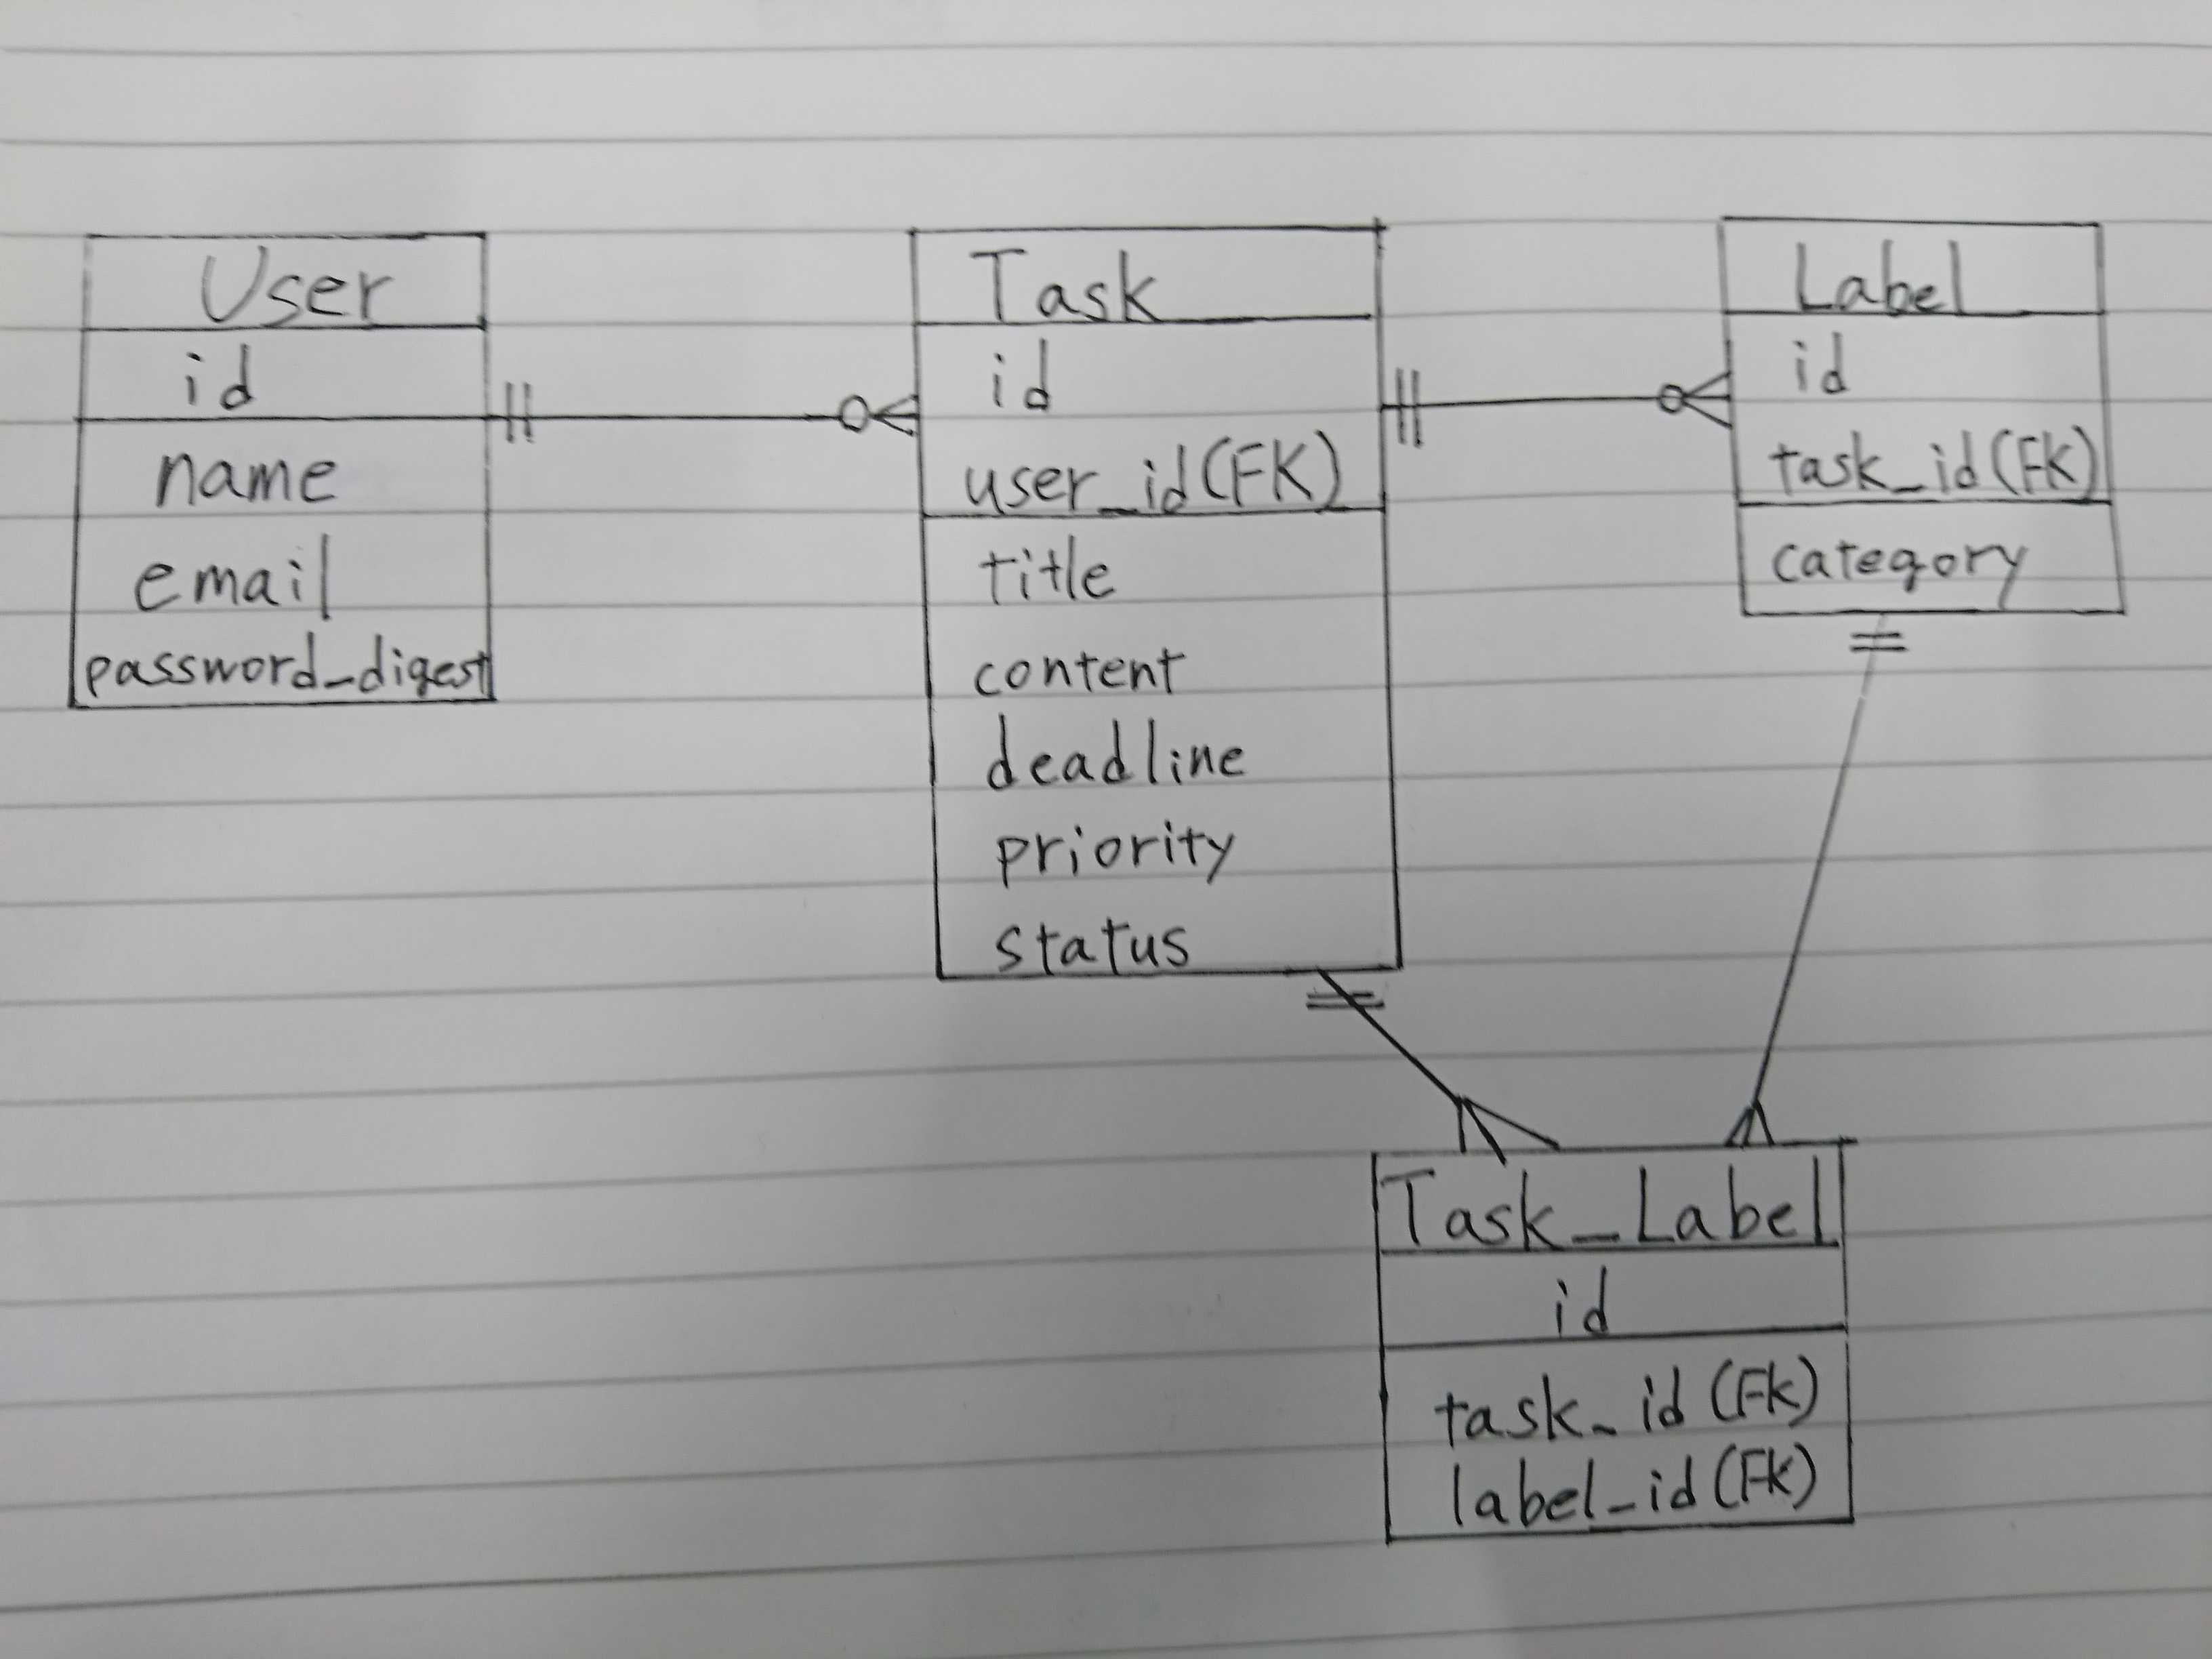 User
id
name
email
password_digest
Task
id
user_id(FK)
title
content
deadline
priority
status
Label
id
task_id(FK)
category
Task_Label
id
task_id(FK)
label_id(FK)